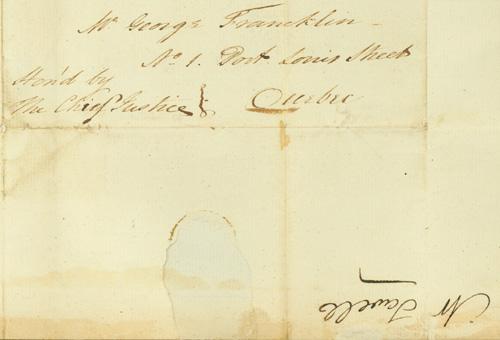 Mr. George Francklin
No. 1. Port Louis Street
Hon'd by
The Chief Justice } Quebec
Mr Jewell